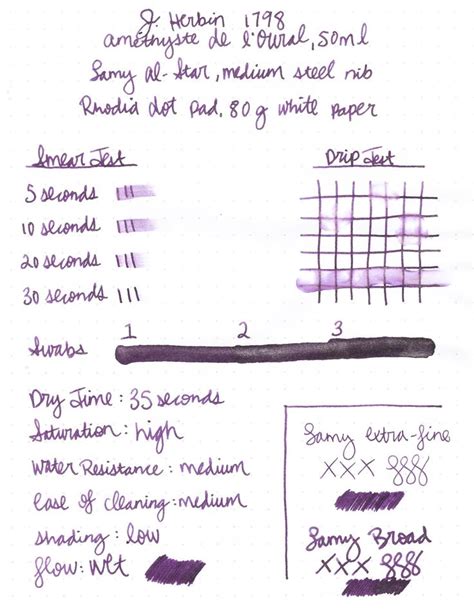 J. Herbin 1798
améthyste de l'Oural, 50ml
Lamy al-Star, medium steel nib
Rhodia dot pad, 80 g white paper
Smear Test
Drip Test
5 seconds
10 seconds
20 seconds
30 seconds
Swabs 1 2 3
Dry Time: 35 seconds
Saturation: high
Water Resistance: medium
ease of cleaning: medium
shading: low
flow: wet
Lamy extra-fine
xxx
Lamy Broad
xxx